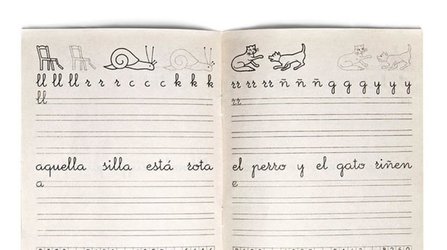 ll ll ll ll r r r c c c k k k
ll
aquella silla está rota
a
rr rr rr rr ñ ñ ñ g g g y y y
rr
el perro y el gato riñen
e